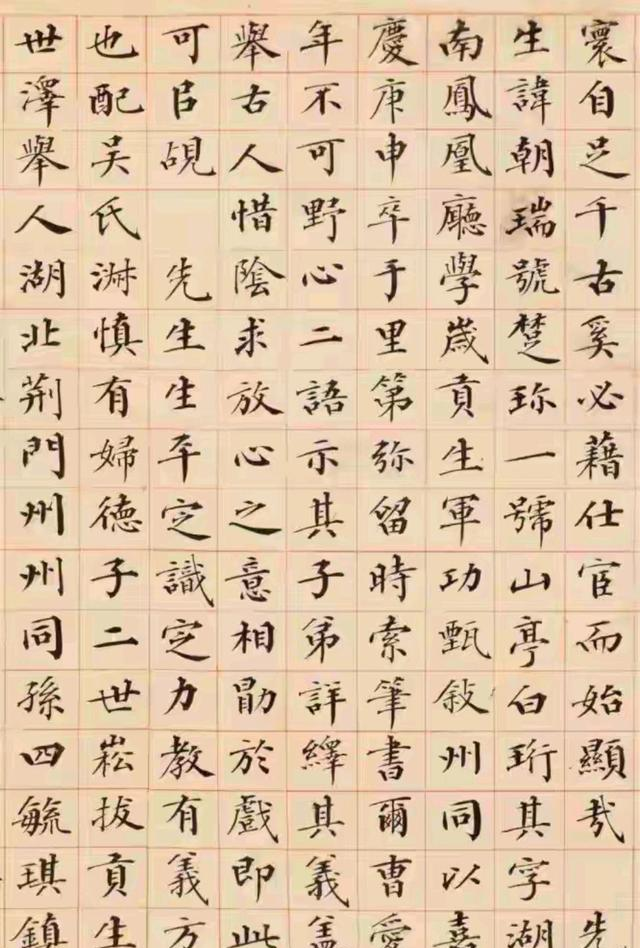 寰自足千古奚必藉仕宦而始顯哉 先
生諱朝瑞號楚珎一號山亭白珩其字湖
南鳳凰廳學歲貢生軍功甄敍州同以嘉
慶庚申卒于里第弥留時索筆書爾曹愛
年不可野心二語示其子弟詳繹其義蓋
舉古人惜陰求放心之意相勖於戲即此
可㠯覘 先生生平定識定力教有義方
也配吳氏淋慎有婦德子二世崧拔貢生
世澤舉人湖北荆門州州同孫四毓琪鎮